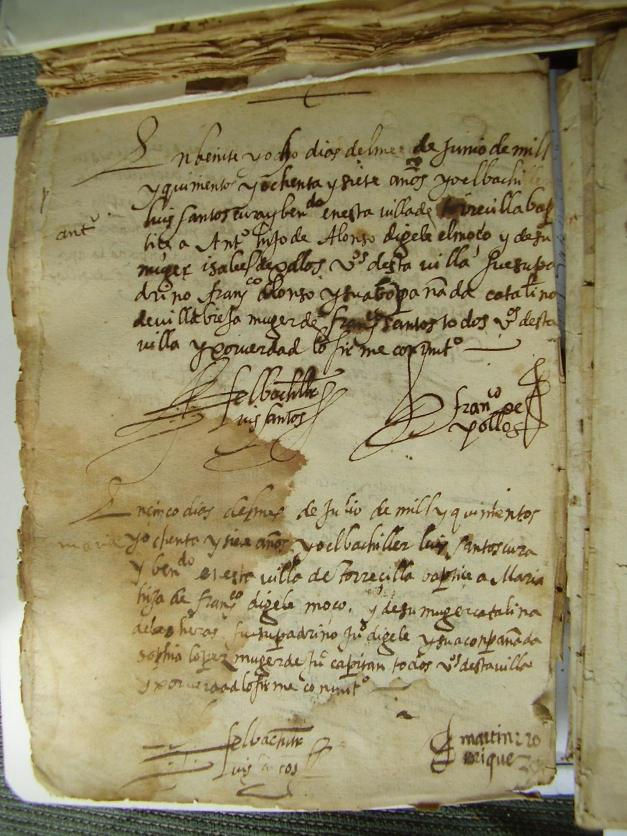 En beinte y ocho dias del mes de Junio de mill
y quinientos y ochenta y siete años yo el bachi
luis santos cura y benᵈᵒ en esta villa de torrecilla bap
antᵒ
tice a Antᵒ hijo de Alonso digele el moço y de su
muger isabel de polos vᵒˢ desta villa fue su pa
drino franᶜᵒ alonso y su acōpañada catalina
de villabieja muger de franᶜᵒ santos todos vᵒˢ desta
villa y por verdad lo firme con juntᵒ
el bachiller
luis santos
franᶜᵒ de
polos
En cinco dias del mes de Julio de mill y quinientos
maria
y ochenta y siete años yo el bachiller luis santos cura
y benᵈᵒ en esta villa de torrecilla baptice a Maria
hija de franᶜᵒ digele moco y de su muger catalina
de fue su padrino juᵒ digele y su aconpañada
sophia lopez muger de juᵒ capitan todos vᵒˢ desta villa
y por verdad lo firme con juntᵒ
el bachiller
luis santos
martin ro
drigue